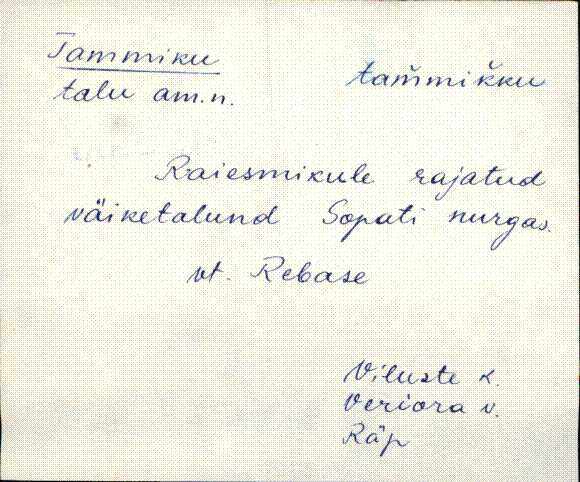 Tammiku
talu am.n.
tam̆mik̆ku
Raiesmikule rajatud
väiketalund Sopati nurgas.
vt. Rebase
Viluste k.
Veriora v.
Räp